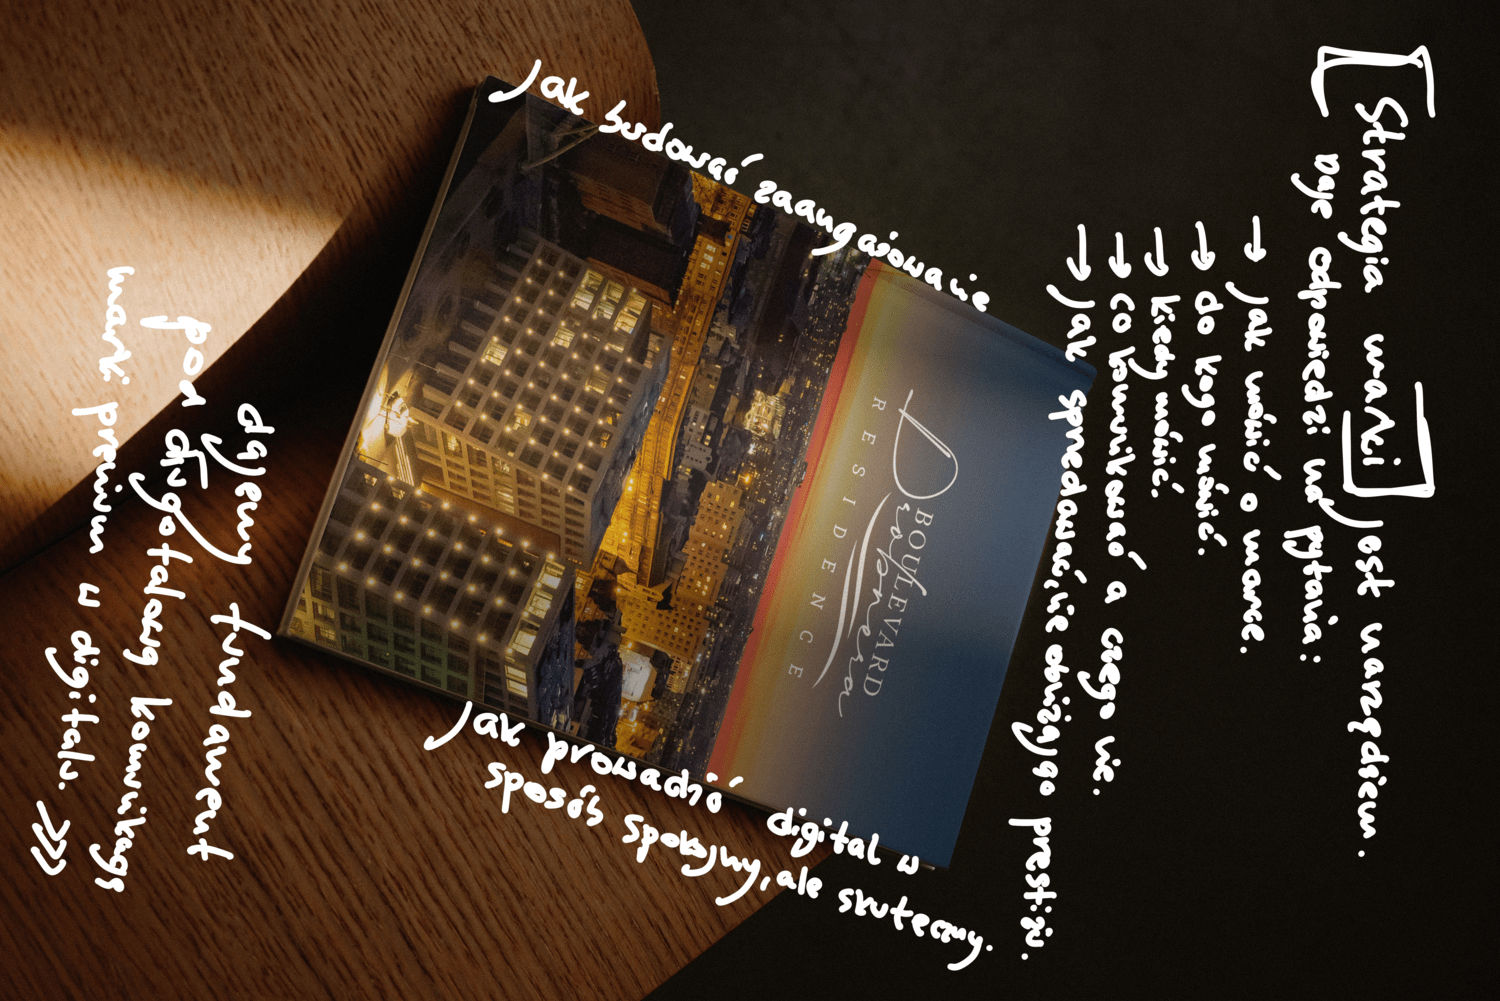 Strategia marki jest narzędziem.
Daje odpowiedzi na pytania:
→ jak mówić o marce.
→ do kogo mówić.
→ kiedy mówić.
→ co komunikować a czego nie.
→ jak sprzedawać, nie obniżając prestiżu.
jak budować zaangażowanie
BOULEVARD
Drobnera
RESIDENCE
jak prowadzić digital w
sposób spokojny, ale skuteczny.
dajemy fundament
pod długofalową komunikację
marki premium w digitalu. >>>